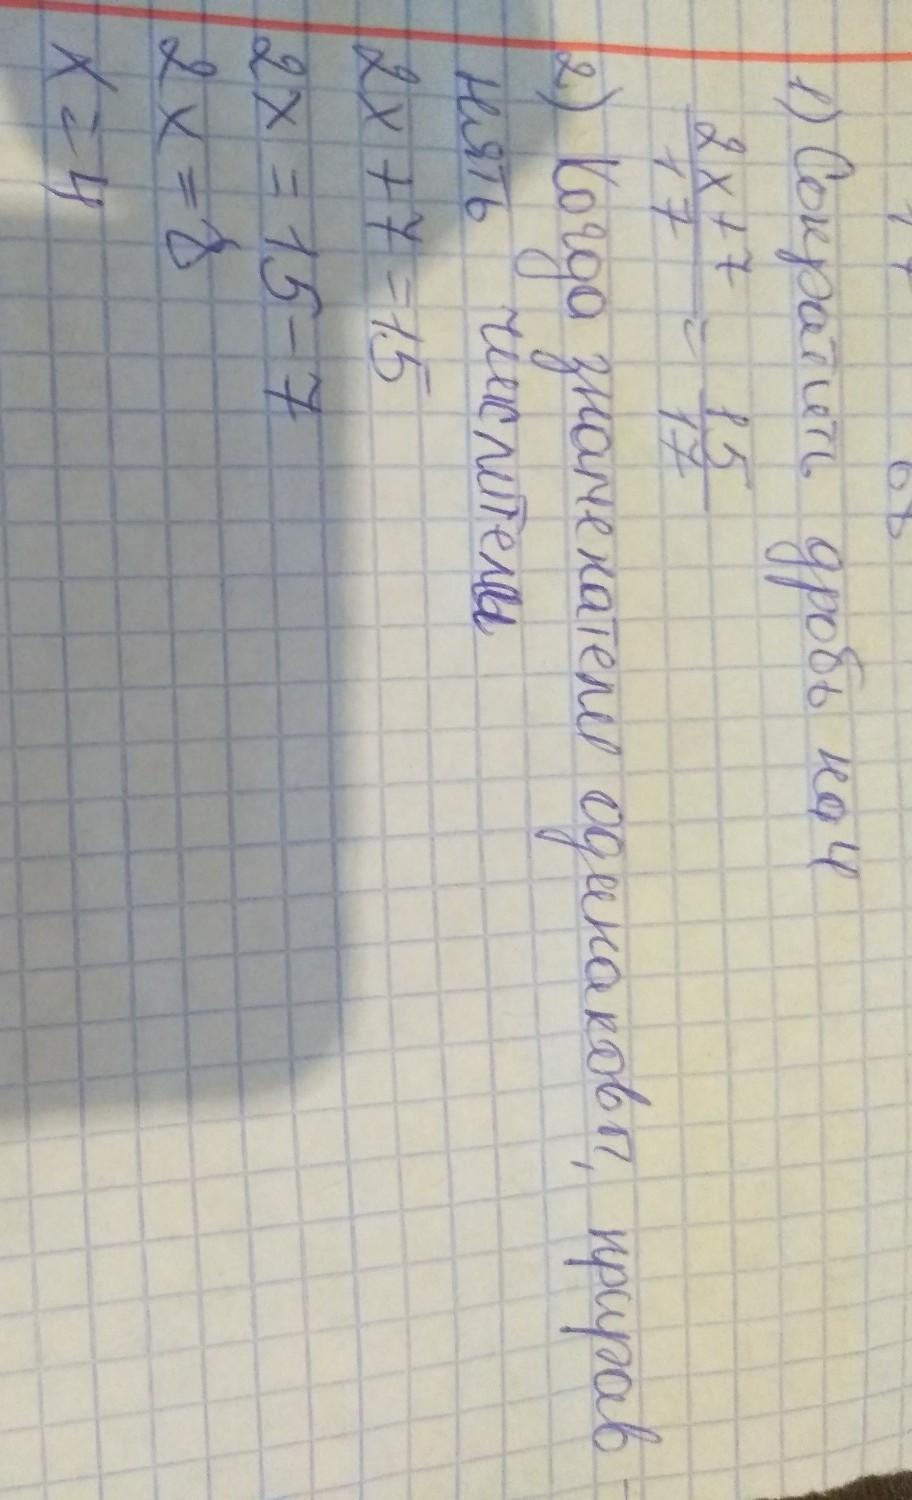 17 68
1) Сократить дробь на 4
2x+7/17 = 15/17
2) Когда знаменатели одинаковы, прирав-
нять числители
2x+7=15
2x=15-7
2x=8
x=4